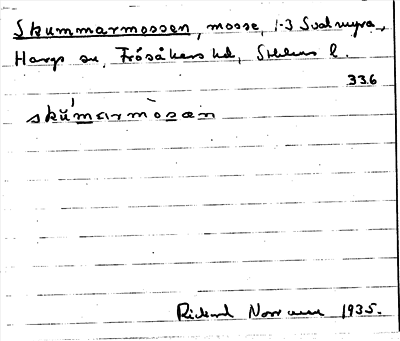 Skummarmossen, mosse, 1-3 Svalmyra,
Hargs sn, Frösåkers hd, Sthlms l.
336
skŭ́marmòsan
Rickard Norrman 1935.